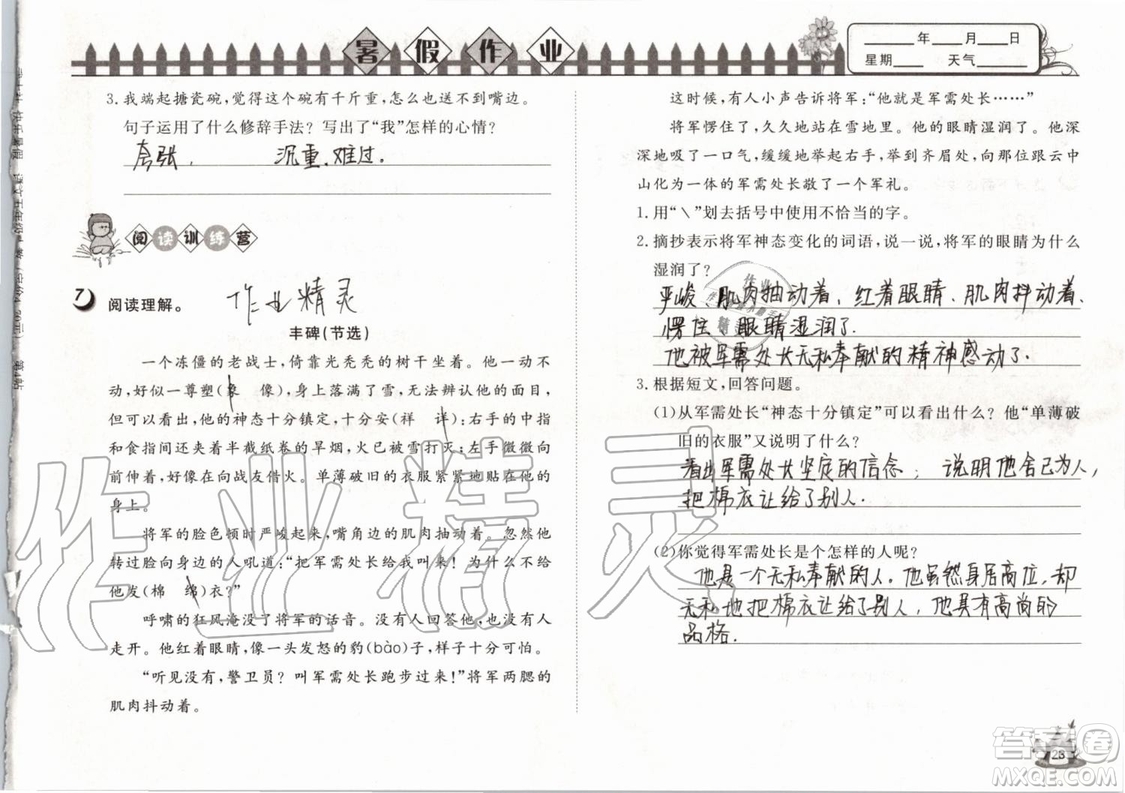 暑假作业
____年____月____日
星期____ 天气______
3. 我端起搪瓷碗，觉得这个碗有千斤重，怎么也送不到嘴边。
句子运用了什么修辞手法？写出了“我”怎样的心情？
夸张、 沉重、难过。
阅读训练营
7 阅读理解。
作业精灵
丰碑(节选)
一个冻僵的老战士，倚靠光秃秃的树干坐着。一动也不
动，好似一尊塑(象 像)，身上落满了雪，无法辨认他的面目，
但可以看出，他的神态十分镇定，十分安(祥 详)；右手的中指
和食指间还夹着半截纸卷的旱烟，火已被雪打灭；左手微微向
前伸着，好像在向战友借火。单薄破旧的衣服紧紧地贴在他的
身上。
将军的脸色顿时严峻起来，嘴角边的肌肉抽动着。他
转过脸向身边的人吼道：“把军需处长给我叫来！为什么不给
他发(棉 绵)衣？”
呼啸的狂风淹没了将军的话音。没有人回答他，也没有人
走开。他红着眼睛，像一头发怒的豹(bào)子，样子十分可怕。
“听见没有，警卫员？叫军需处长跑步过来！”将军两腮的
肌肉抖动着。
这时候，有人小声告诉将军：“他就是军需处长……”
将军愣住了，久久地站在雪地里。他的眼睛湿润了。他深
深地吸了一口气，缓缓地举起右手，举到齐眉处，向那位跟云中
山化为一体的军需处长敬了一个军礼。
1. 用“＼”划去括号中使用不恰当的字。
2. 摘抄表示将军神态变化的词语，说一说，将军的眼睛为什么
湿润了？
严峻、肌肉抽动着、红着眼睛、肌肉抖动着、
愣住、眼睛湿润了.
他被军需处长无私奉献的精神感动了.
3. 根据短文，回答问题。
(1)从军需处长“神态十分镇定”可以看出什么？他“单薄破
旧的衣服”又说明了什么？
看出军需处长坚定的信念；说明他舍己为人,
把棉衣让给了别人.
(2)你觉得军需处长是个怎样的人呢？
他是一个无私奉献的人。他虽然身居高位，却
无私地把棉衣让给了别人，他具有高尚的
品格.
作业精灵
答案圈
MXQE.COM